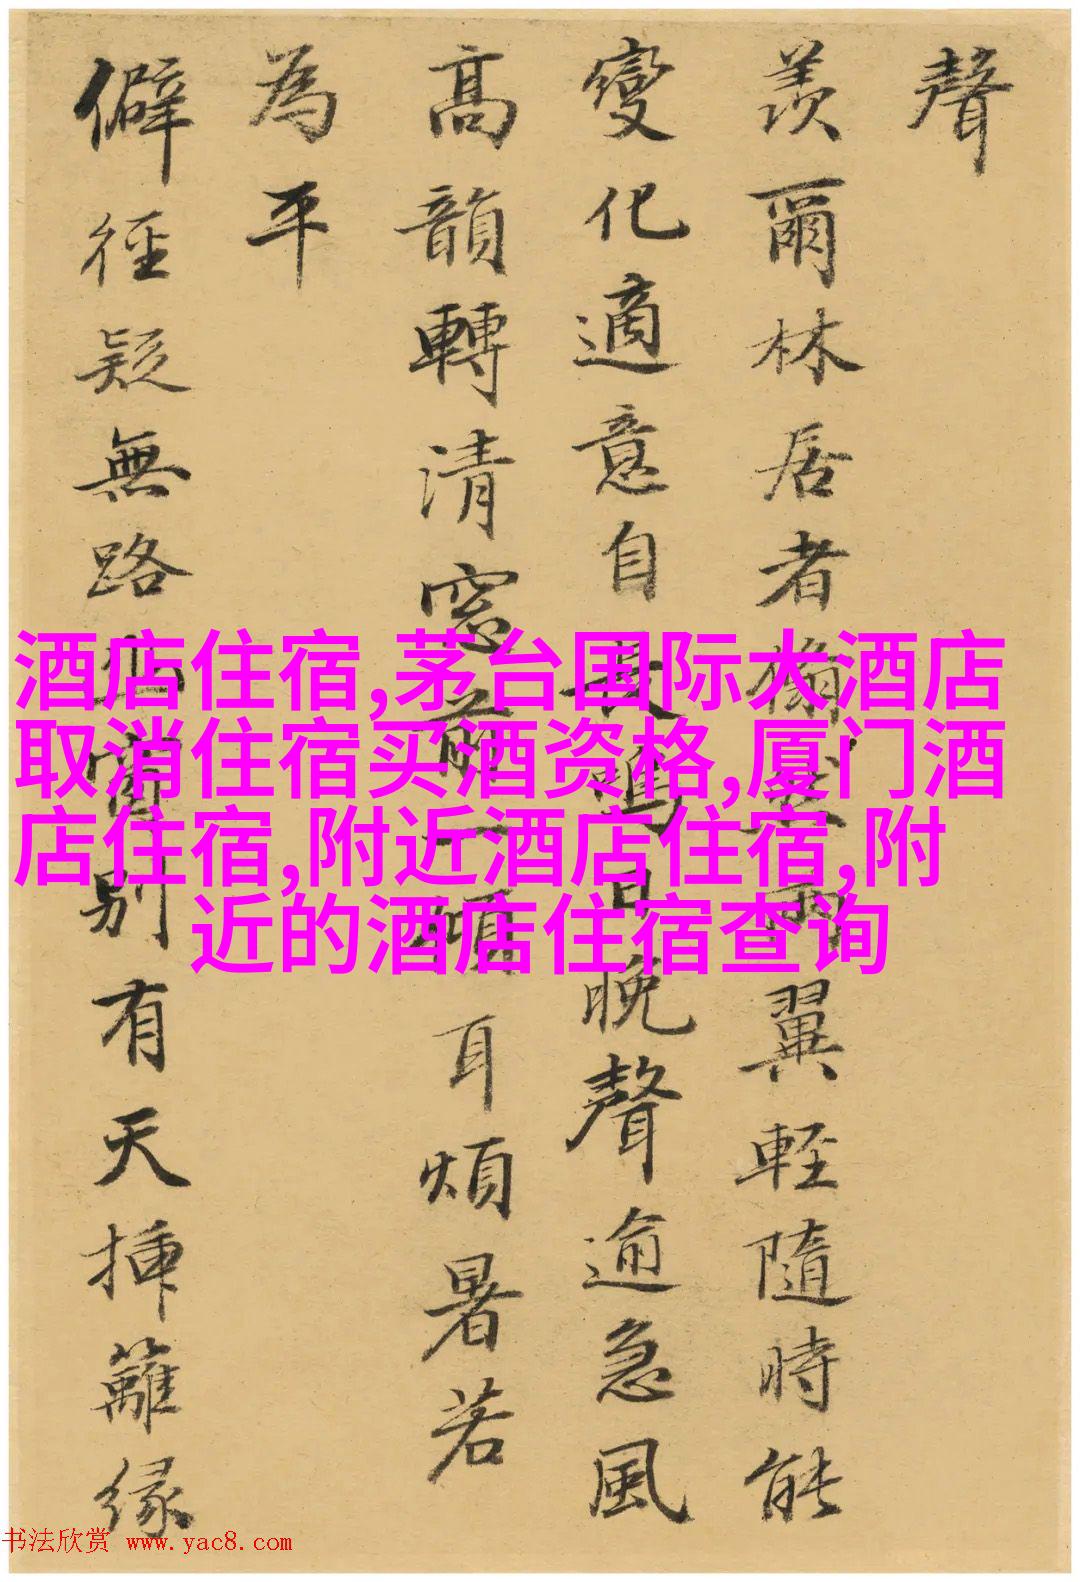 聲
羨爾林居者翛
翼輕隨時能
變化適意自長鳴日晚聲逾急風
高韻轉清窓前一傾耳煩暑若
為平
僻徑疑無路
別有天揷籬緣
酒店住宿,茅台国际大酒店
取消住宿买酒资格,厦门酒
店住宿,附近酒店住宿,附
近的酒店住宿查询
书法欣赏 www.yac8.com